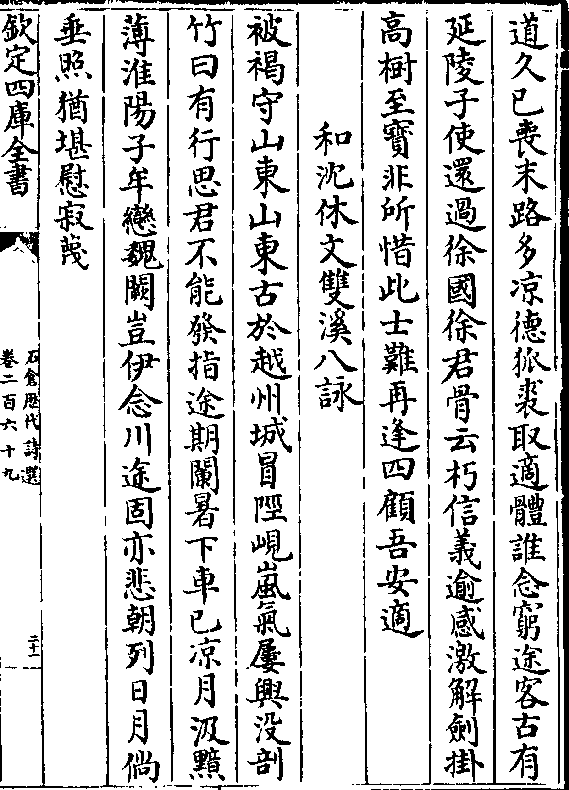 道久已喪末路多凉德狐裘取適體誰念窮途客古有
延陵子使還過徐國徐君骨云朽信義逾感激解劍掛
高樹至寳非所惜此士難再逢四顧吾安適
和沈休文雙溪八詠
被褐守山東山東古於越州城冒陘峴嵐氣屢興没剖
竹曰有行思君不能發指途期闌暑下車已凉月汲黯
薄淮陽子年戀魏闕豈伊念川途固亦悲朝列日月倘
垂照猶堪慰寂蔑
欽定四庫全書
石倉歷代詩選
卷二百六十九
二十一